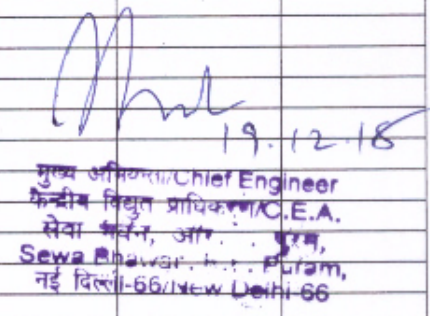 19.12.18
मुख्य अभियन्ता/Chief Engineer
केन्द्रीय विद्युत प्राधिकरण/C.E.A.
सेवा भवन, आर. . पुरम,
Sewa Bhawan, R. . Puram,
नई दिल्ली-66/New Delhi-66